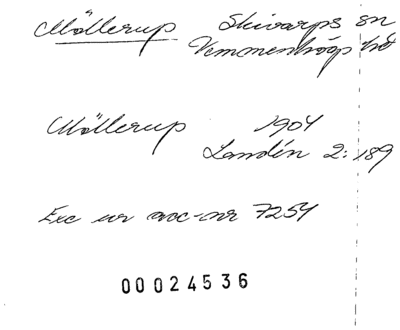 Möllerup Skivarps sn
Vemmenhögs hd
Möllerup 1904
Landén 2:189
Exc ur acc-nr 7254
00024536